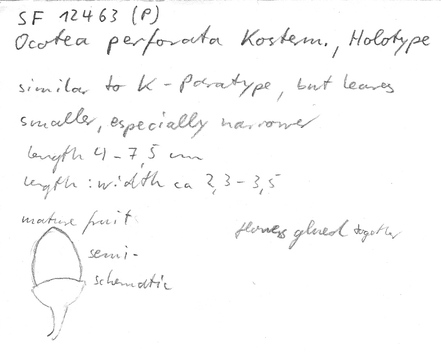 SF 12463 (P)
Ocotea perforata Kosterm., Holotype
similar to K-Paratype, but leaves
smaller, especially narrower
length 4-7,5 cm
length : width ca 2,3-3,5
mature fruit
flowers glued together
semi-
schematic